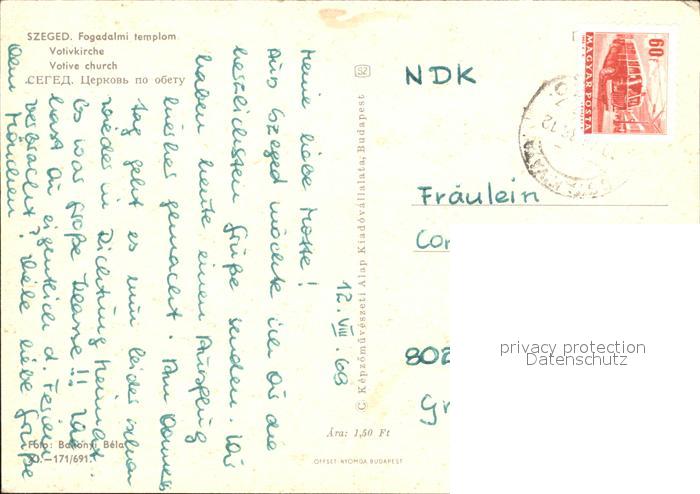 SZEGED. Fogadalmi templom
Votivkirche
Votive church
СЕГЕД. Церковь по обету
12. VIII. 69
Meine liebe Motte!
Aus Szeged möchte ich Dir die
herzlichsten Grüße senden. Wir
haben heute einen Ausflug
hierher gemacht. Am Donners
tag geht es nun leider schon
wieder in Richtung Heimat.
Es war große Klasse!! Wie
hast Du eigentlich d. Ferien
verbracht? Viele liebe Grüße
Dein
Foto: Bakonyi Béla
XI.—171/691.
C Képzőművészeti Alap Kiadóvállalata, Budapest
Ára: 1,50 Ft
OFFSET-NYOMDA BUDAPEST
60f
MAGYAR POSTA
NDK
Fräulein
Cor
802
Gr
privacy protection
Datenschutz